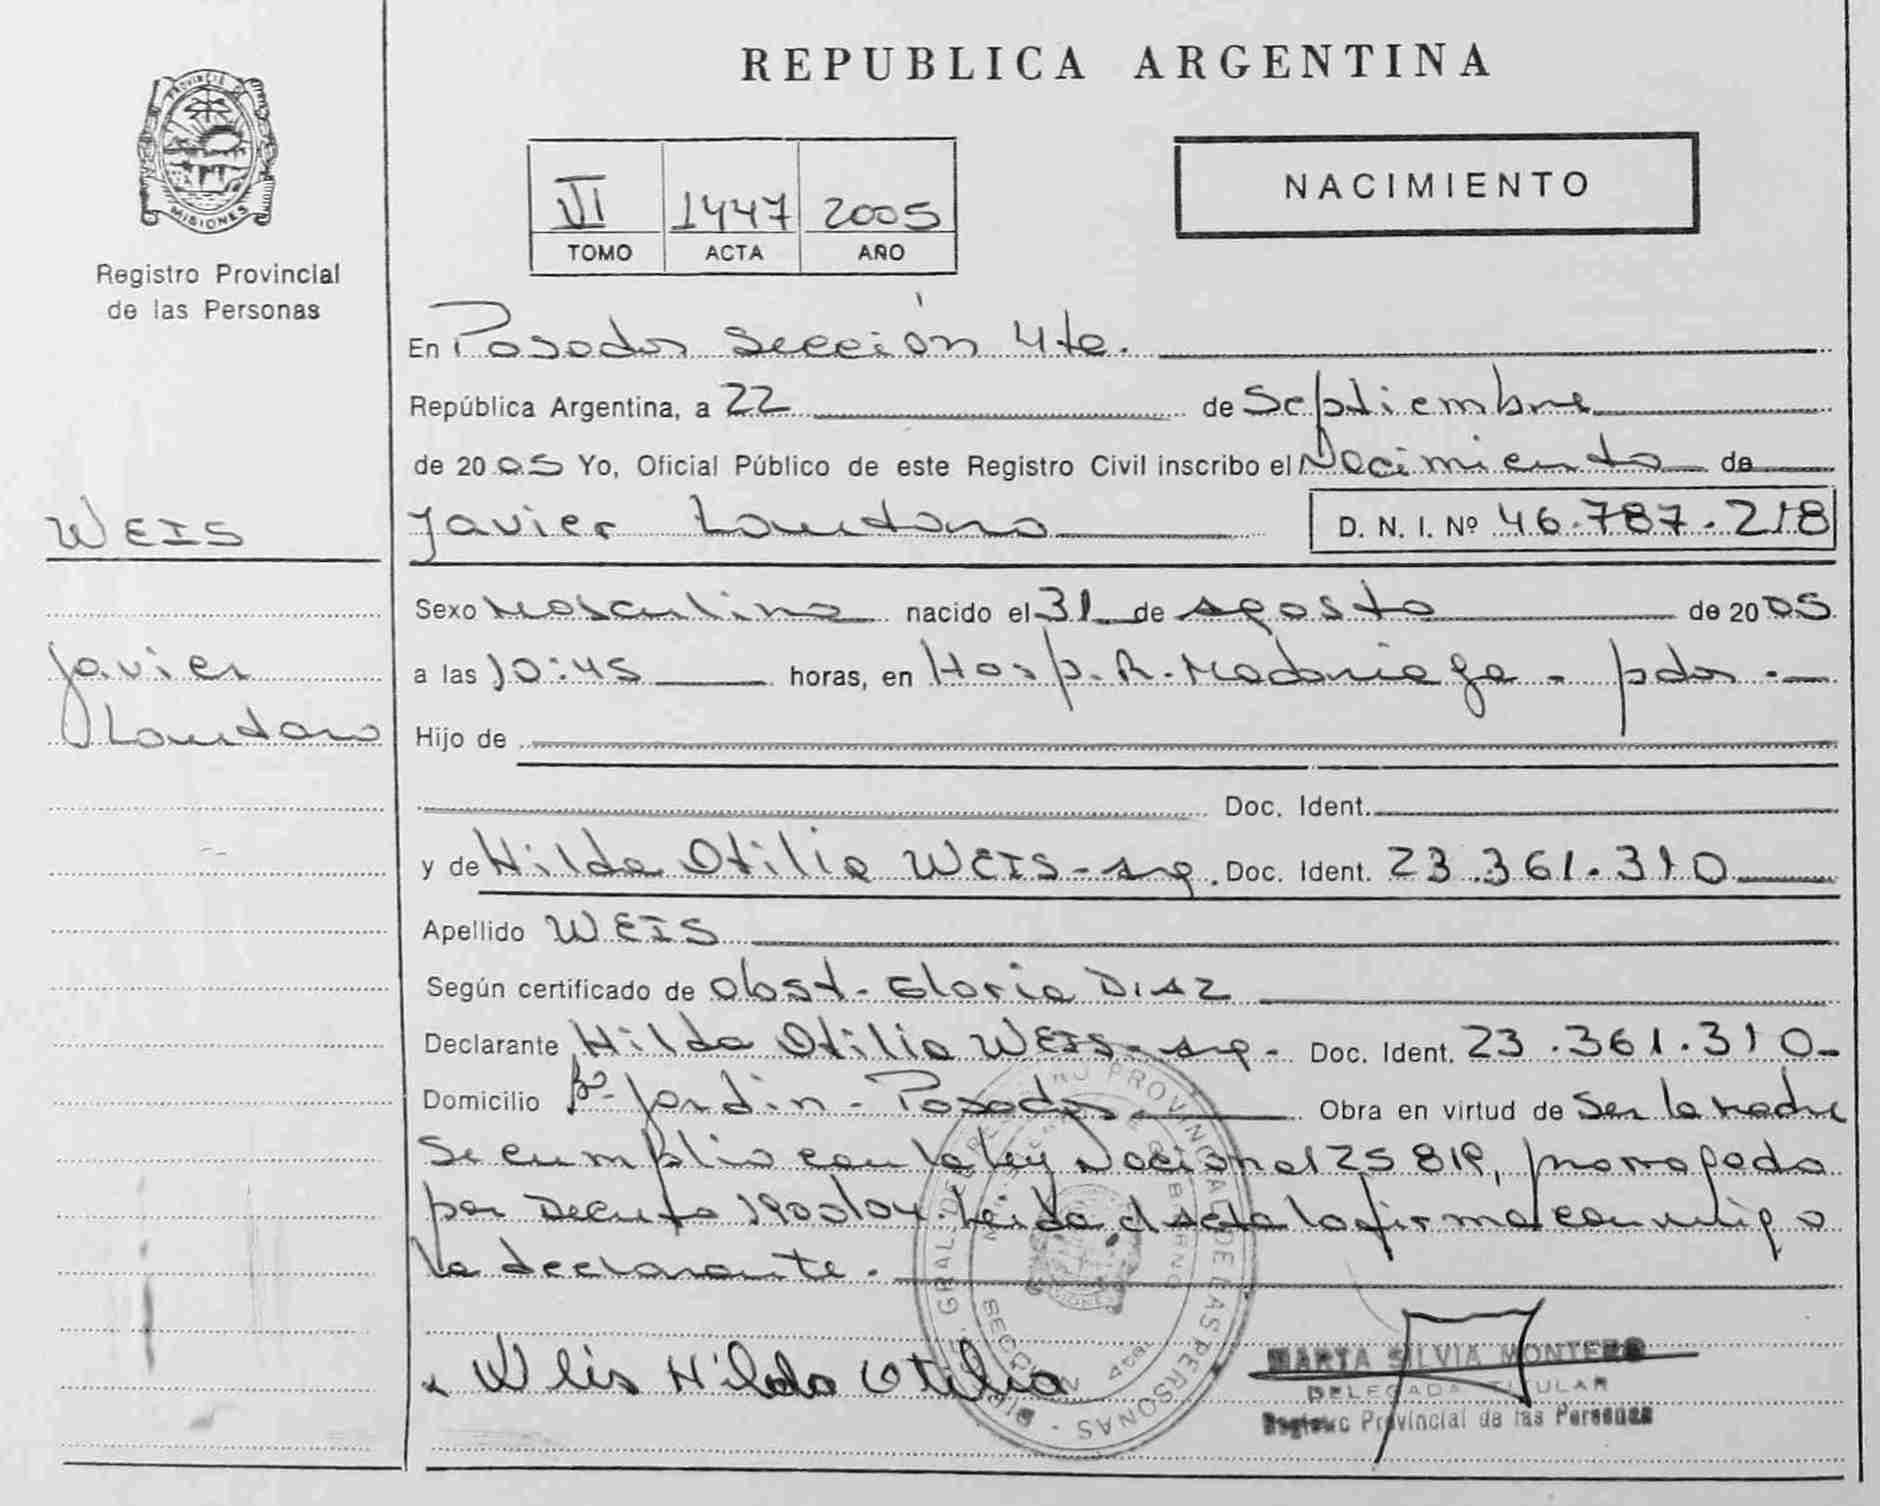 REPUBLICA ARGENTINA
PROVINCIA DE MISIONES
Registro Provincial
de las Personas
VI 1447 2005
TOMO ACTA AÑO
NACIMIENTO
En Posadas Sección 4ta.
República Argentina, a 22 de Septiembre
de 2005 Yo, Oficial Público de este Registro Civil inscribo el Nacimiento de
WEIS
Javier Lautaro D. N. I. Nº 46.787.218
Sexo Masculino nacido el 31 de agosto de 2005
Javier
Lautaro
a las 10:45 horas, en Hosp. R. Madariaga - pdas.
Hijo de
Doc. Ident.
y de Hilda Otilia WEIS - arg. Doc. Ident. 23.361.310
Apellido WEIS
Según certificado de Obst. Gloria DIAZ
Declarante Hilda Otilia WEIS - arg. Doc. Ident. 23.361.310-
Domicilio Bº Jardin - Posadas Obra en virtud de Ser la Madre
Se cumplio con la ley Nacional 25819, prorrogada
por Decreto 1900/04. Leida el acta la firma conmigo
la declarante.
Weis Hilda Otilia
MARTA SILVIA MONTERO
DELEGADA TITULAR
Registro Provincial de las Personas
DIR. GRAL. DEL REGISTRO PROVINCIAL DE LAS PERSONAS
SECCION 4ta.